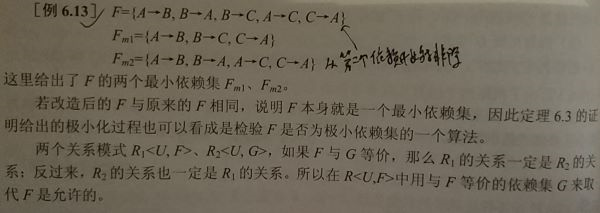 [例 6.13] F={A→B, B→A, B→C, A→C, C→A}
Fm1={A→B, B→C, C→A}
Fm2={A→B, B→A, A→C, C→A} 从第二个依赖开始排除
这里给出了 F 的两个最小依赖集 Fm1、Fm2。
若改造后的 F 与原来的 F 相同，说明 F 本身就是一个最小依赖集，因此定理 6.3 的证
明给出的极小化过程也可以看成是检验 F 是否为极小依赖集的一个算法。
两个关系模式 R1<U, F>、R2<U, G>，如果 F 与 G 等价，那么 R1 的关系一定是 R2 的关
系；反过来，R2 的关系也一定是 R1 的关系。所以在 R<U,F>中用与 F 等价的依赖集 G 来取
代 F 是允许的。